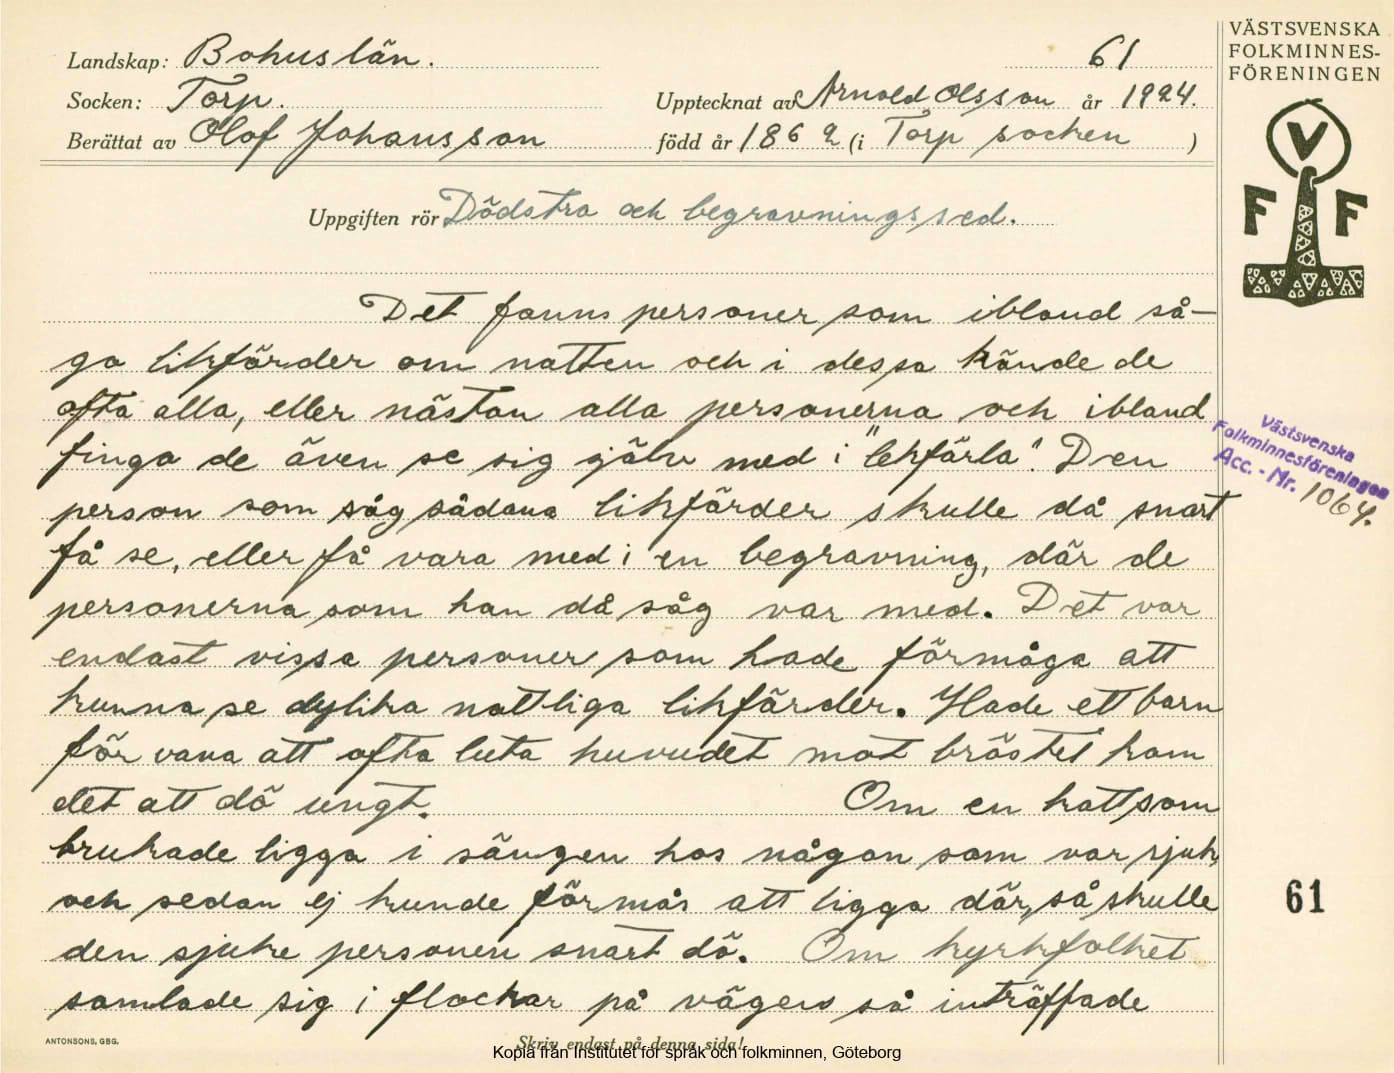 Landskap: Bohuslän.
61
Socken: Torp.
Upptecknat av Arnold Olsson år 1924.
Berättat av Olof Johansson
född år 1862 (i Torp socken )
VÄSTSVENSKA
FOLKMINNES-
FÖRENINGEN
V
F F
Uppgiften rör Dödstro och begravningssed.
Det fanns personer som ibland så-
go likfärder om natten och i dessa kände de
ofta alla, eller nästan alla personerna och ibland
fingo de även se sig själv med i "lekfärla". Den
person som såg sådana likfärder skulle då snart
få se, eller få vara med i en begravning, där de
personerna som han då såg var med. Det var
endast vissa personer som hade förmåga att
kunna se dylika nattliga likfärder. Hade ett barn
för vana att ofta luta huvudet mot bröstet kom
det att dö ungt. Om en katt som
brukade ligga i sängen hos någon som var sjuk,
och sedan ej kunde förmås att ligga där, så skulle
den sjuke personen snart dö. Om kyrkfolket
samlade sig i flockar på vägen så inträffade
Västsvenska
Folkminnesföreningen
Acc. - Nr. 1064.
61
ANTONSONS, GBG.
Skriv endast på denna sida!
Kopia från Institutet för språk och folkminnen, Göteborg